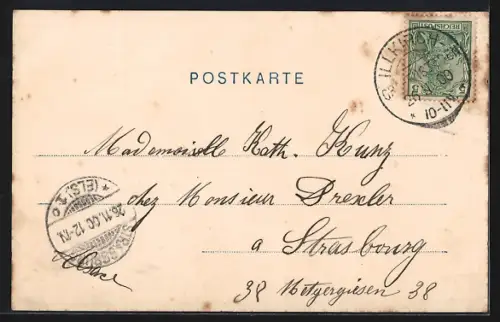 REICHSPOST
ILLKIRCH
10-11V
POSTKARTE
Mademoiselle Kath. Kunz
chez Monsieur Drexler
a Strasbourg
Alsace
38 Metzgergiesen 38
(ELS.) 1
26.11.00.12-1N.